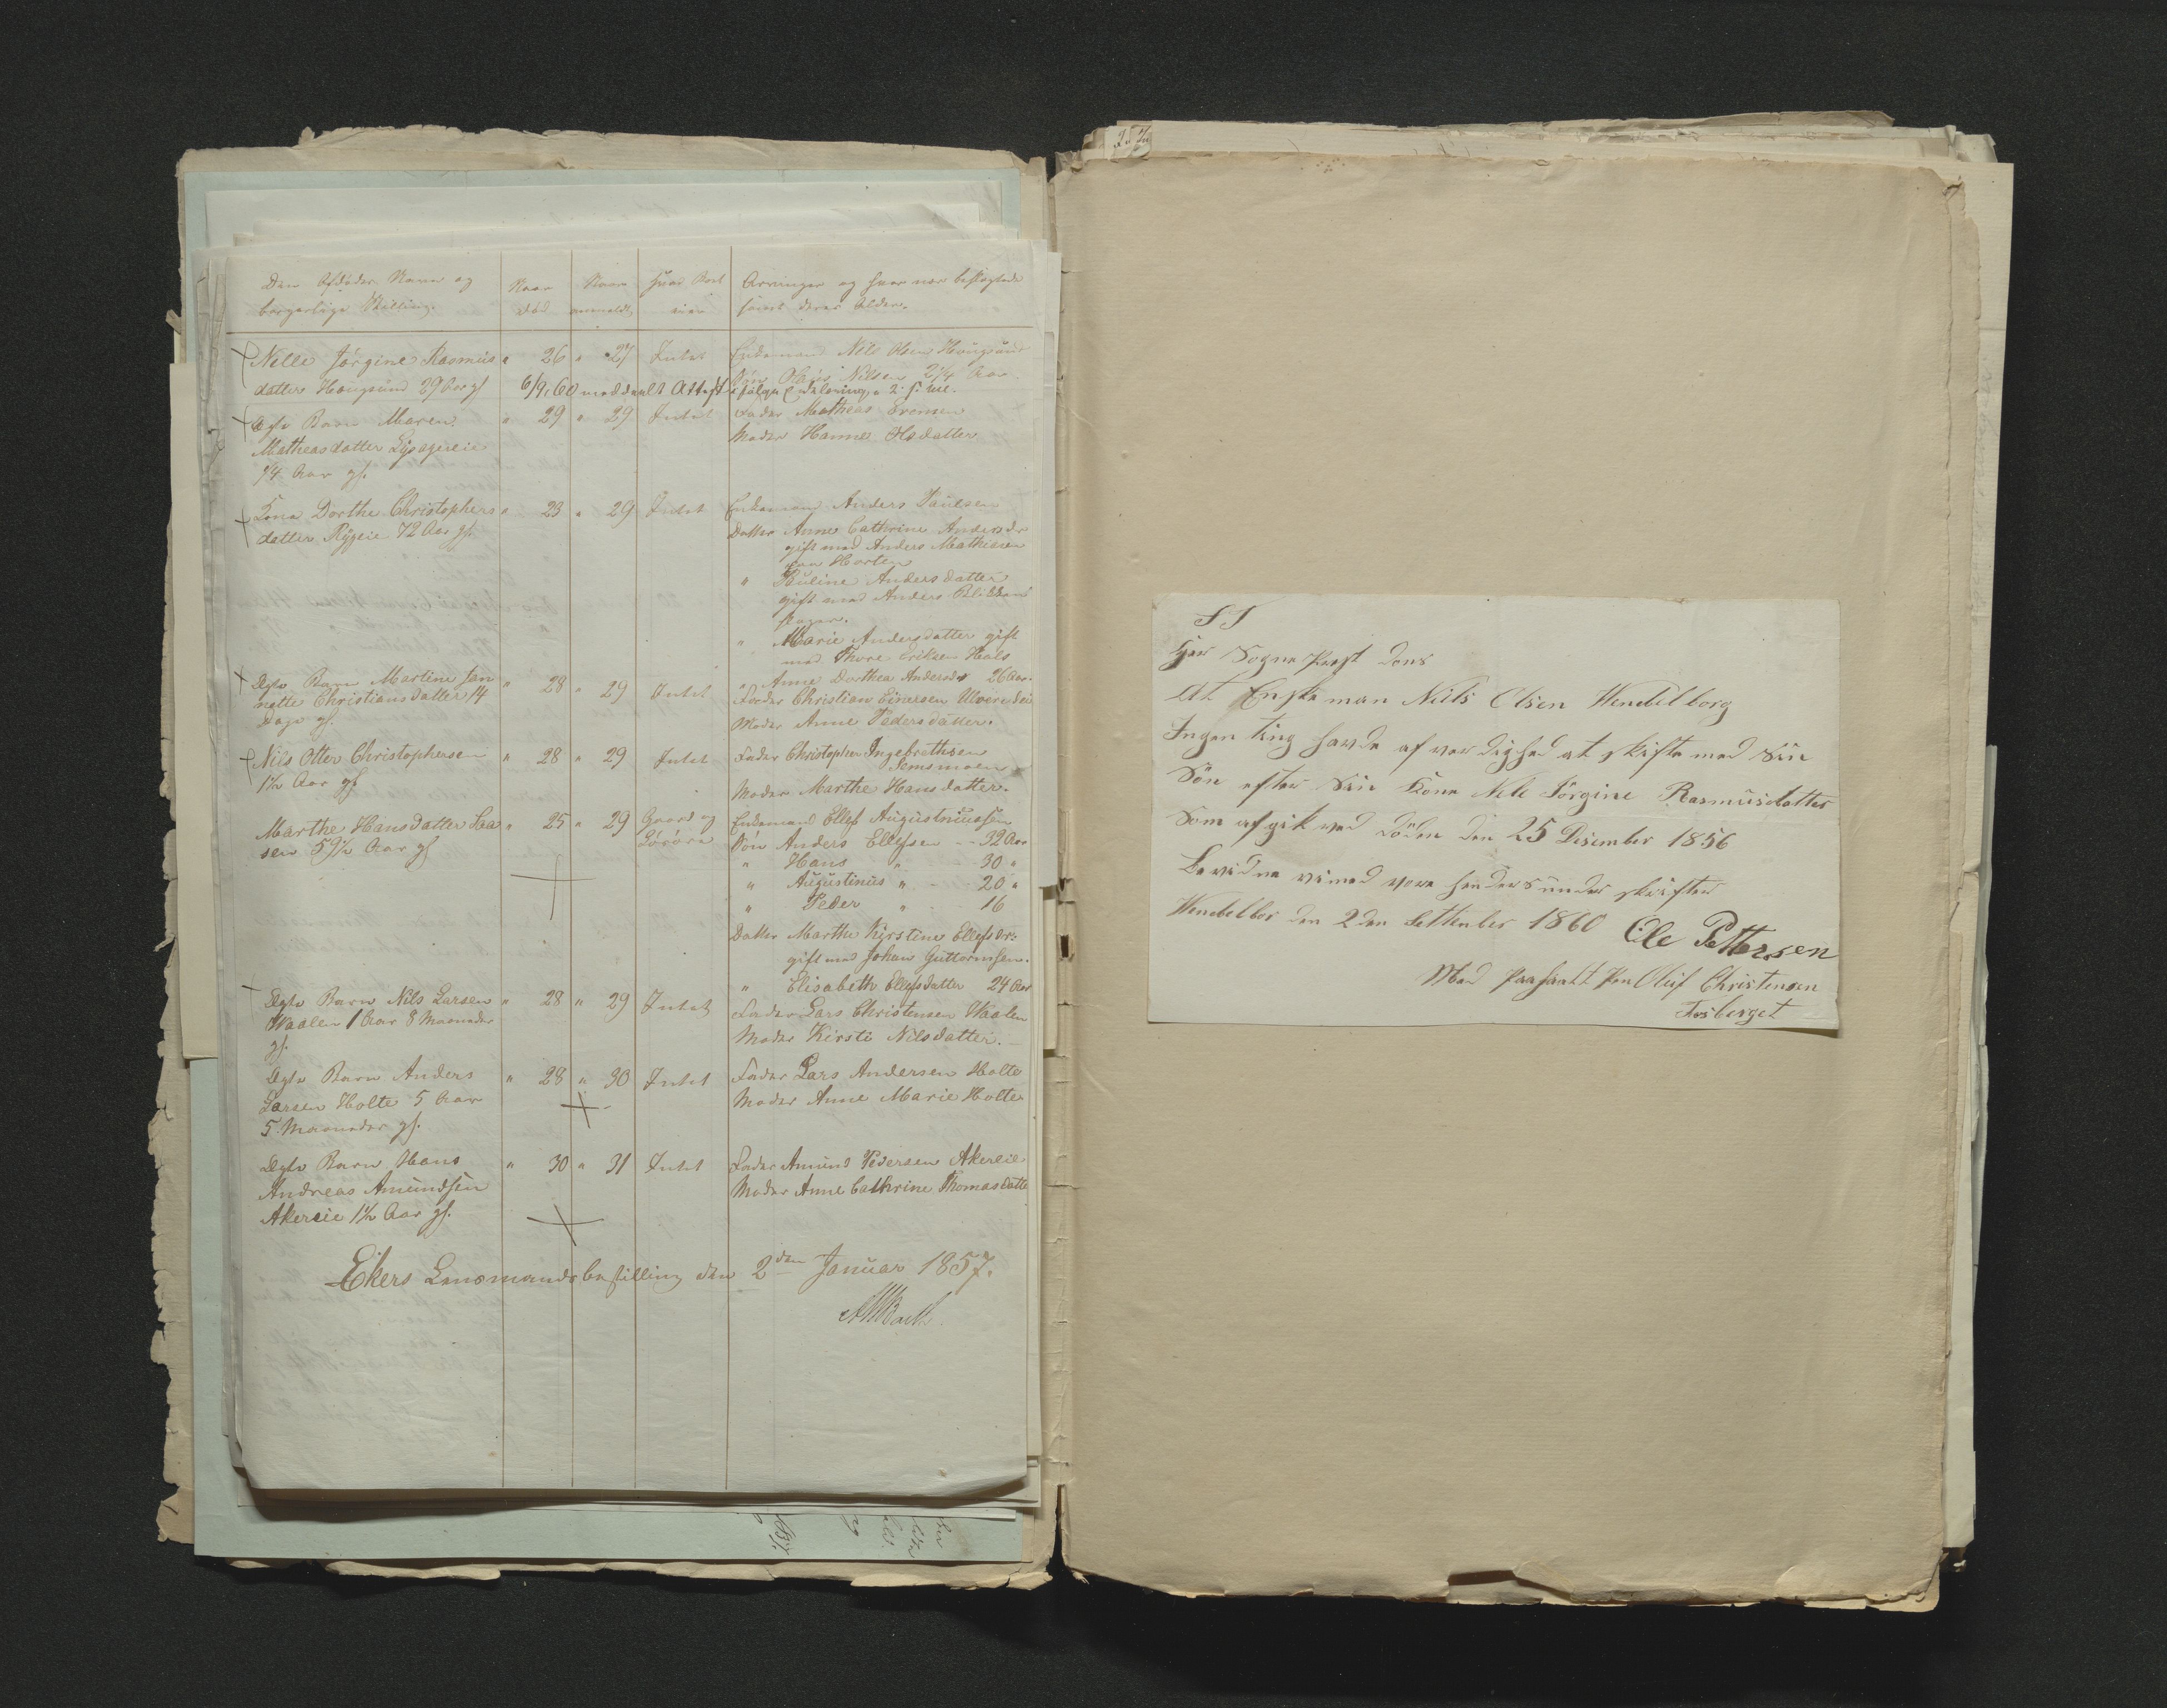 Den Afdødes Navn og
borgerlige Stilling.
Naar
død
Naar
anmeldt
Hvad Boet
eier
Arvinger og hvor nær beslægtede
samt deres Alder.
Nelle Jørgine Rasmus
datter Hougsund 29 Aar gl
" 26 " 27 Intet
Enkemand Nils Olsen Hougsund
Søn Olaves Nilsen 2 1/4 Aar
6/9. 60 meddeelt Attest ifølge Erklæring
Ægte Barn Maren
Matheasdatter Lysagereie
1/4 Aar gl.
" 29 " 29 Intet
Fader Matheas Evensen
Moder Hanne Olsdatter
Kone Dorthe Christophers
datter Rygeie 72 Aar gl.
" 23 " 29 Intet
Enkemand Anders Paulsen
Datter Anne Cathrine Andersdr
gift med Anders Mathisen
paa Horten
" Pauline Andersdatter
gift med Anders Blikken
slager.
" Marie Andersdatter gift
med Thore Eriksen Hals
" Anne Dorthea Andersdr 26 Aar.
Ægte Barn Martine Jan
nette Christiansdatter 14
Dage gl.
" 28 " 29 Intet
Fader Christian Einersen
Moder Anne Pedersdatter.
Nils Otter Christophersen
1 1/2 Aar gl
" 28 " 29 Intet
Fader Christopher Ingebrethsen
Semsmoen
Moder Marthe Hansdatter.
Marthe Hansdatter Saa
sen 59 1/2 Aar gl
" 25 " 29 Gaard og
Løsøre
Enkemand Ellef Augustinussen
Søn Anders Ellefsen - - 32 Aar
" Hans " - 30 "
" Augustinus " - 20 "
" Peder " - 16
Datter Marthe Kirstine Ellefsdr.
gift med Johan Guttormsen.
" Elisabeth Ellefsdatter 24 Aar
Ægte Barn Nils Larsen
Haalen 1 Aar 8 Maaneder
gl.
" 28 " 29 Intet
Fader Lars Christensen Haalen
Moder Kirsti Nilsdatter.
Ægte Barn Anders
Larsen Holte 5 Aar
5 Maaneder gl.
" 28 " 30 Intet
Fader Lars Andersen Holte
Moder Anne Marie Holte
Ægte Barn Hans
Andreas Amundsen
Akereie 1 1/2 Aar gl.
" 30 " 31 Intet
Fader Amund Pedersen Akereie
Moder Anne Cathrine Thomasdatte
Ekers Lensmandsbestilling den 2den Januar 1857.
S T
Her Sogne Prest Dons
At Enkeman Niils Olsen Hendelborg
Ingen ting havde af verdighed at skifte med Siin
Sön efter Siin Kone Nele Jörgine Rasmüsdatter
Som afgik ved döden den 25 Desember 1856
Bevidne vi med vore henders under skrifter
Hendelbor den 2den Setthember 1860
Ole Pettersen
Med paahaalt Pen Oluf Christensen
Fosberget